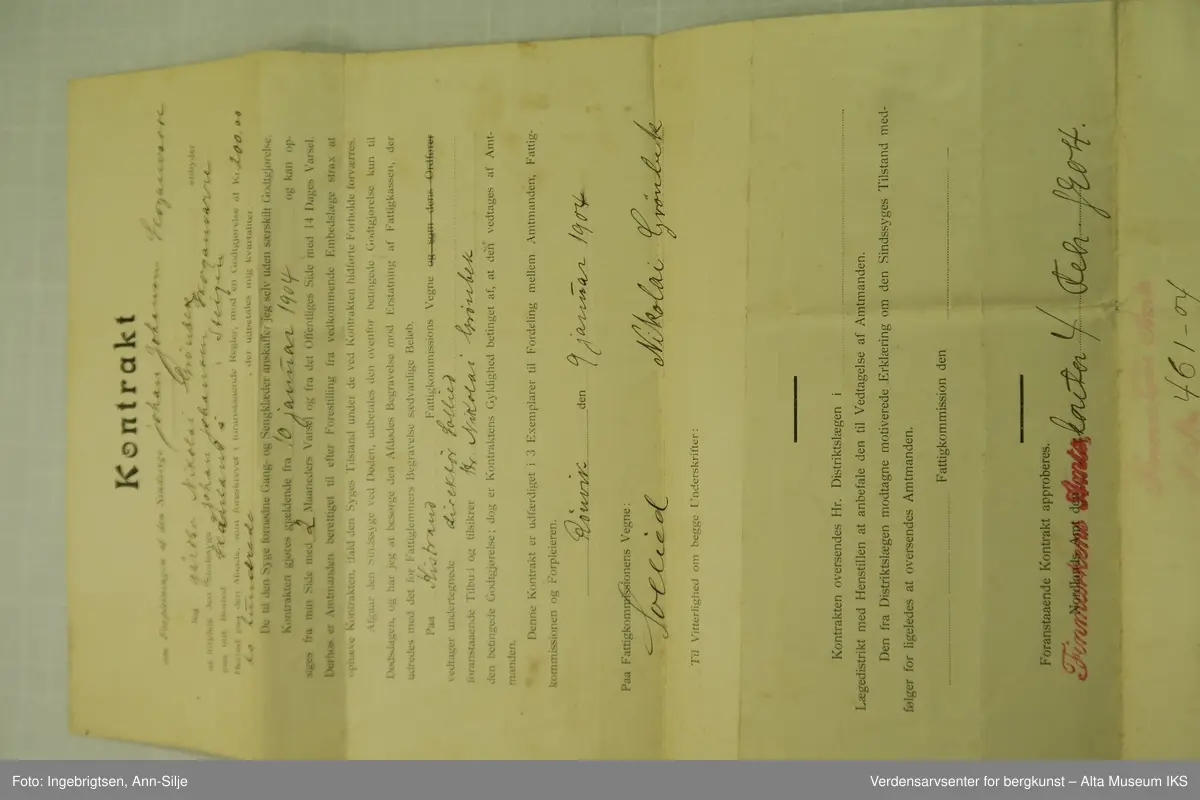 Kontrakt
om Forpleining af den Sindssyge Johan Johansen
Jeg Gårdb. Nikolai Grönbek tilbyder
at forpleie den Sindssyge Johan Johansen
paa mit Bosted i Steigen
Herred paa den Maade, som foreskrevet i foranstaaende Regler, mod en Godtgjørelse af Kr. 200.00
to hundrede, der udbetales mig kvartaliter.
De til den Syge fornødne Gang- og Sengklæder anskaffer jeg selv uden særskilt Godtgjørelse.
Kontrakten gjøres gjældende fra 10 januar 1904 og kan op-
siges fra min Side med 2 Maaneders Varsel og fra det Offentliges Side med 14 Dages Varsel.
Derhos er Amtmanden berettiget til efter Forestilling fra vedkommende Embedslæge strax at
ophæve Kontrakten, ifald den Syges Tilstand under de ved Kontrakten hidførte Forholde forværres.
Afgaar den Sindssyge ved Døden, udbetales den ovenfor betingede Godtgjørelse kun til
Dødsdagen, og har jeg at besørge den Afdødes Begravelse mod Erstatning af Fattigkassen, der
udredes med det for Fattiglemmers Begravelse sædvanlige Beløb.
Paa Fattigkommissions Vegne og som dens Ordfører
vedtager undertegnede direktør Solied
foranstaaende Tilbud og tilsikrer Hr. Nikolai Grönbek
den betingede Godtgjørelse; dog er Kontraktens Gyldighed betinget af, at den vedtages af Amt-
manden.
Denne Kontrakt er udfærdiget i 3 Exemplarer til Fordeling mellem Amtmanden, Fattig-
kommissionen og Forpleieren.
Rönvik den 9 januar 1904
Paa Fattigkommissionens Vegne:
Solied Nikolai Grönbek
Til Vitterlighed om begge Underskrifter:
Kontrakten oversendes Hr. Distriktslægen i
Lægedistrikt med Henstillen at anbefale den til Vedtagelse af Amtmanden.
Den fra Distriktslægen modtagne motiverede Erklæring om den Sindssyges Tilstand med-
følger for ligeledes at oversendes Amtmanden.
Fattigkommission den
Foranstaaende Kontrakt approberes.
Finmarkens Amt
Nordlands Amt den 4 Febr 1904.
461-04
Foto: Ingebrigtsen, Ann-Silje
Verdensarvsenter for bergkunst – Alta Museum IKS